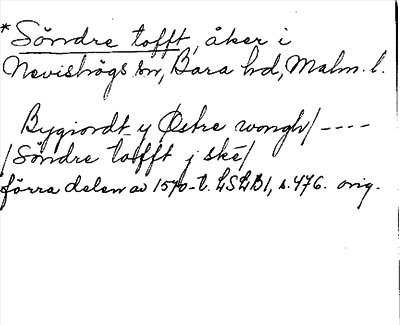 * Söndre tofft, åker i
Nevishögs sn, Bara hd, Malm. l.
Bygiordt y Østre wongh/ ----
/Söndre tofft j ske/
förra delen av 1570-t. LSLB1, s. 476. orig.